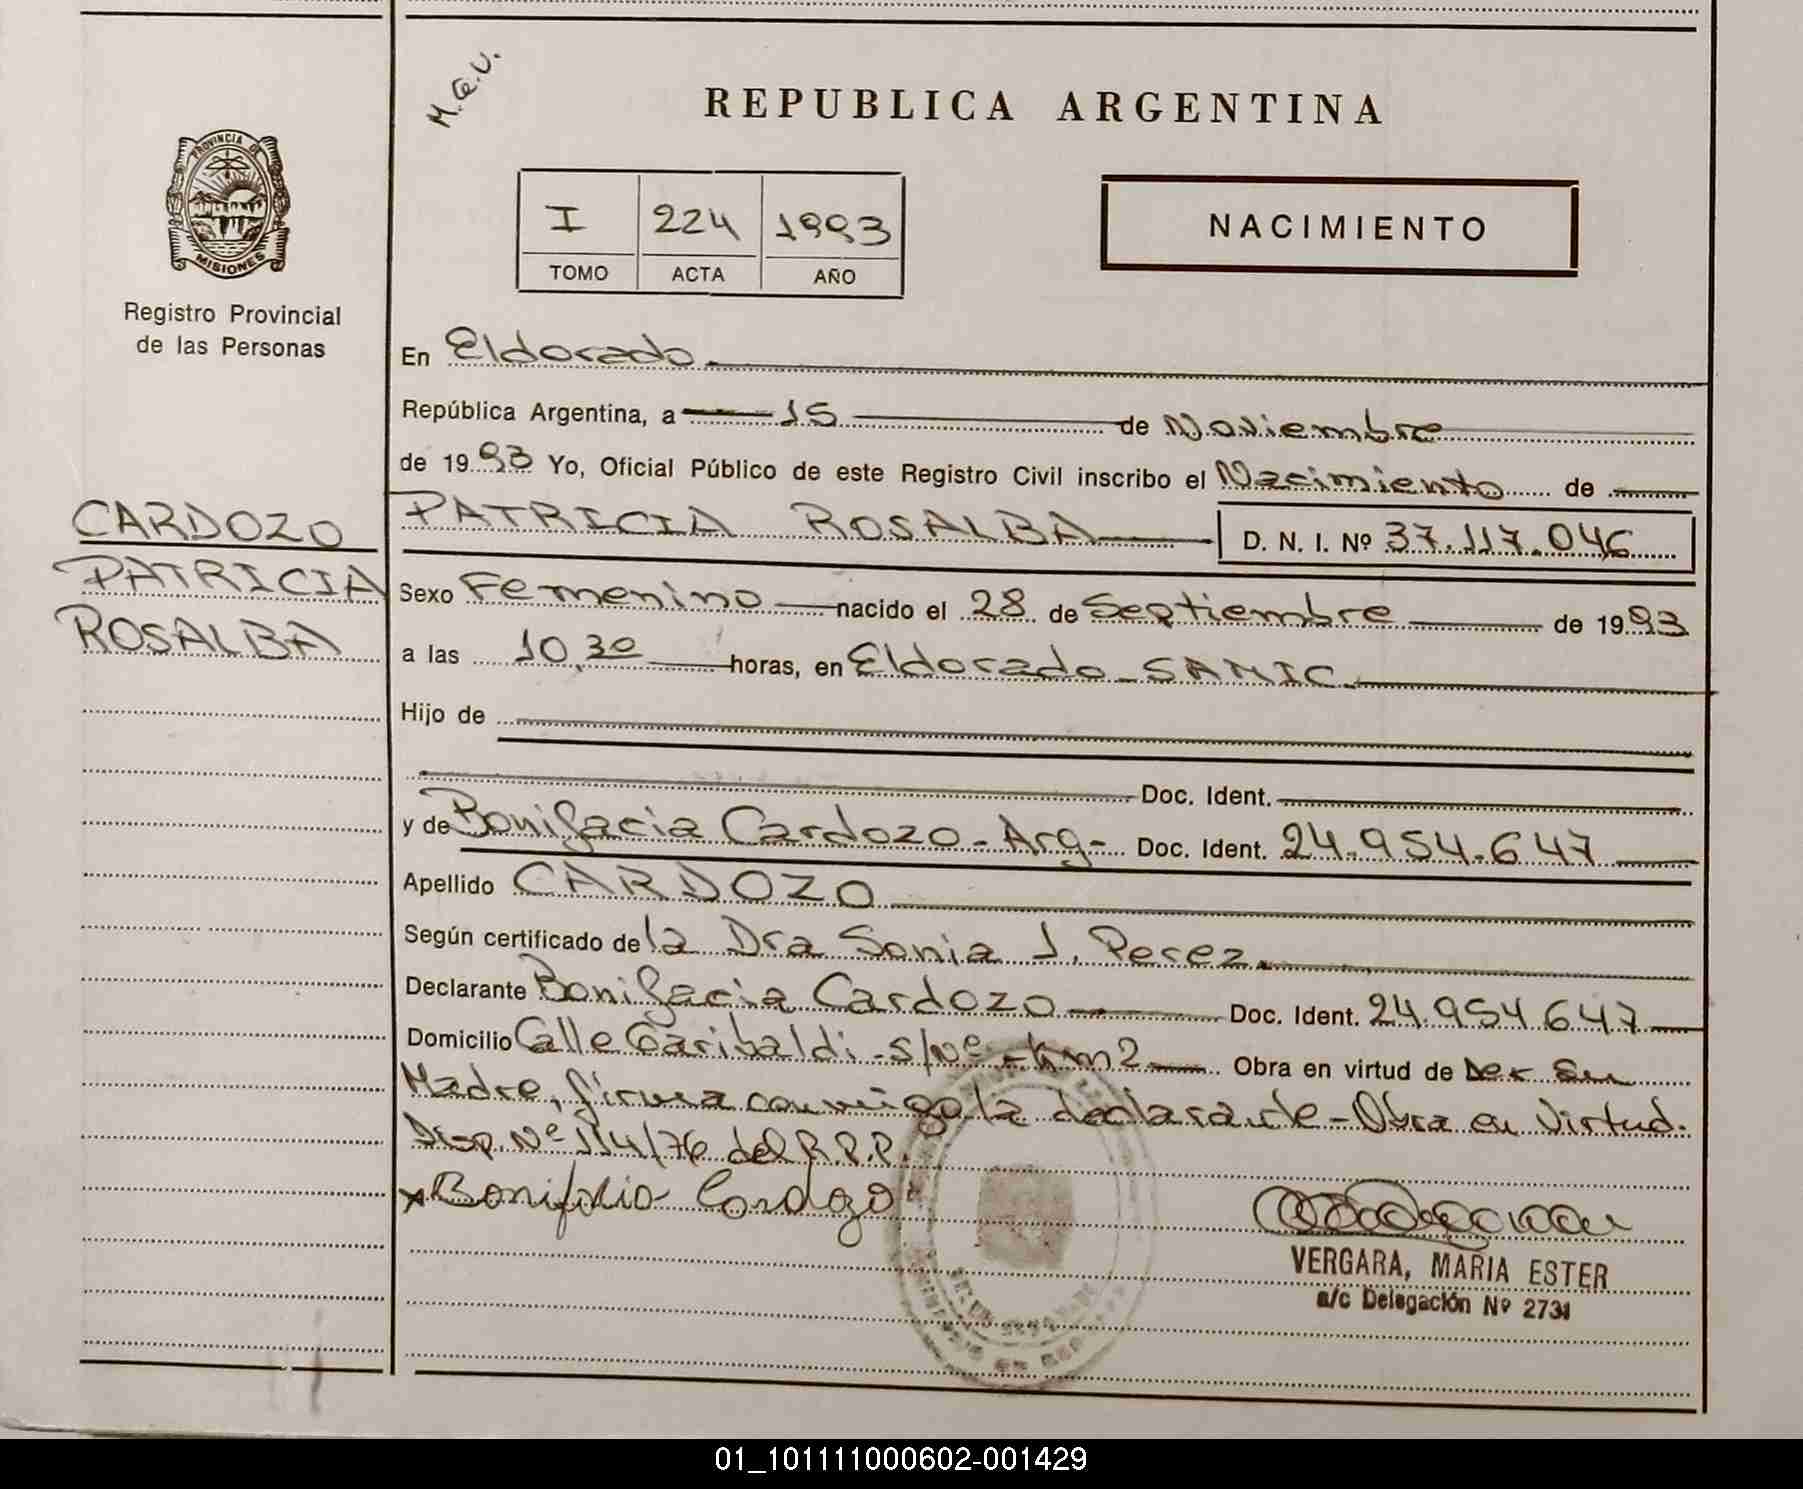 M.G.V.
REPUBLICA ARGENTINA
PROVINCIA DE
MISIONES
Registro Provincial
de las Personas
I 224 1993
TOMO ACTA AÑO
NACIMIENTO
En Eldorado
República Argentina, a 15 de Noviembre
de 1993 Yo, Oficial Público de este Registro Civil inscribo el Nacimiento de
CARDOZO
PATRICIA
ROSALBA
PATRICIA ROSALBA D. N. I. Nº 37.117.046
Sexo Femenino nacido el 28 de Septiembre de 1993
a las 10,30 horas, en Eldorado - SAMIC.
Hijo de
Doc. Ident.
y de Bonifacia Cardozo - Arg - Doc. Ident. 24.954.647
Apellido CARDOZO
Según certificado de la Dra Sonia J. Perez.
Declarante Bonifacia Cardozo Doc. Ident. 24.954.647
Domicilio Calle Garibaldi - S/Nº - Km 2 Obra en virtud de ser su
Madre, firma conmigo la declarante - Obra en Virtud.
Disp. Nº 114/76 del R.P.P.
x Bonifacia Cardozo
VERGARA, MARIA ESTER
a/c Delegación Nº 2731
01_101111000602-001429